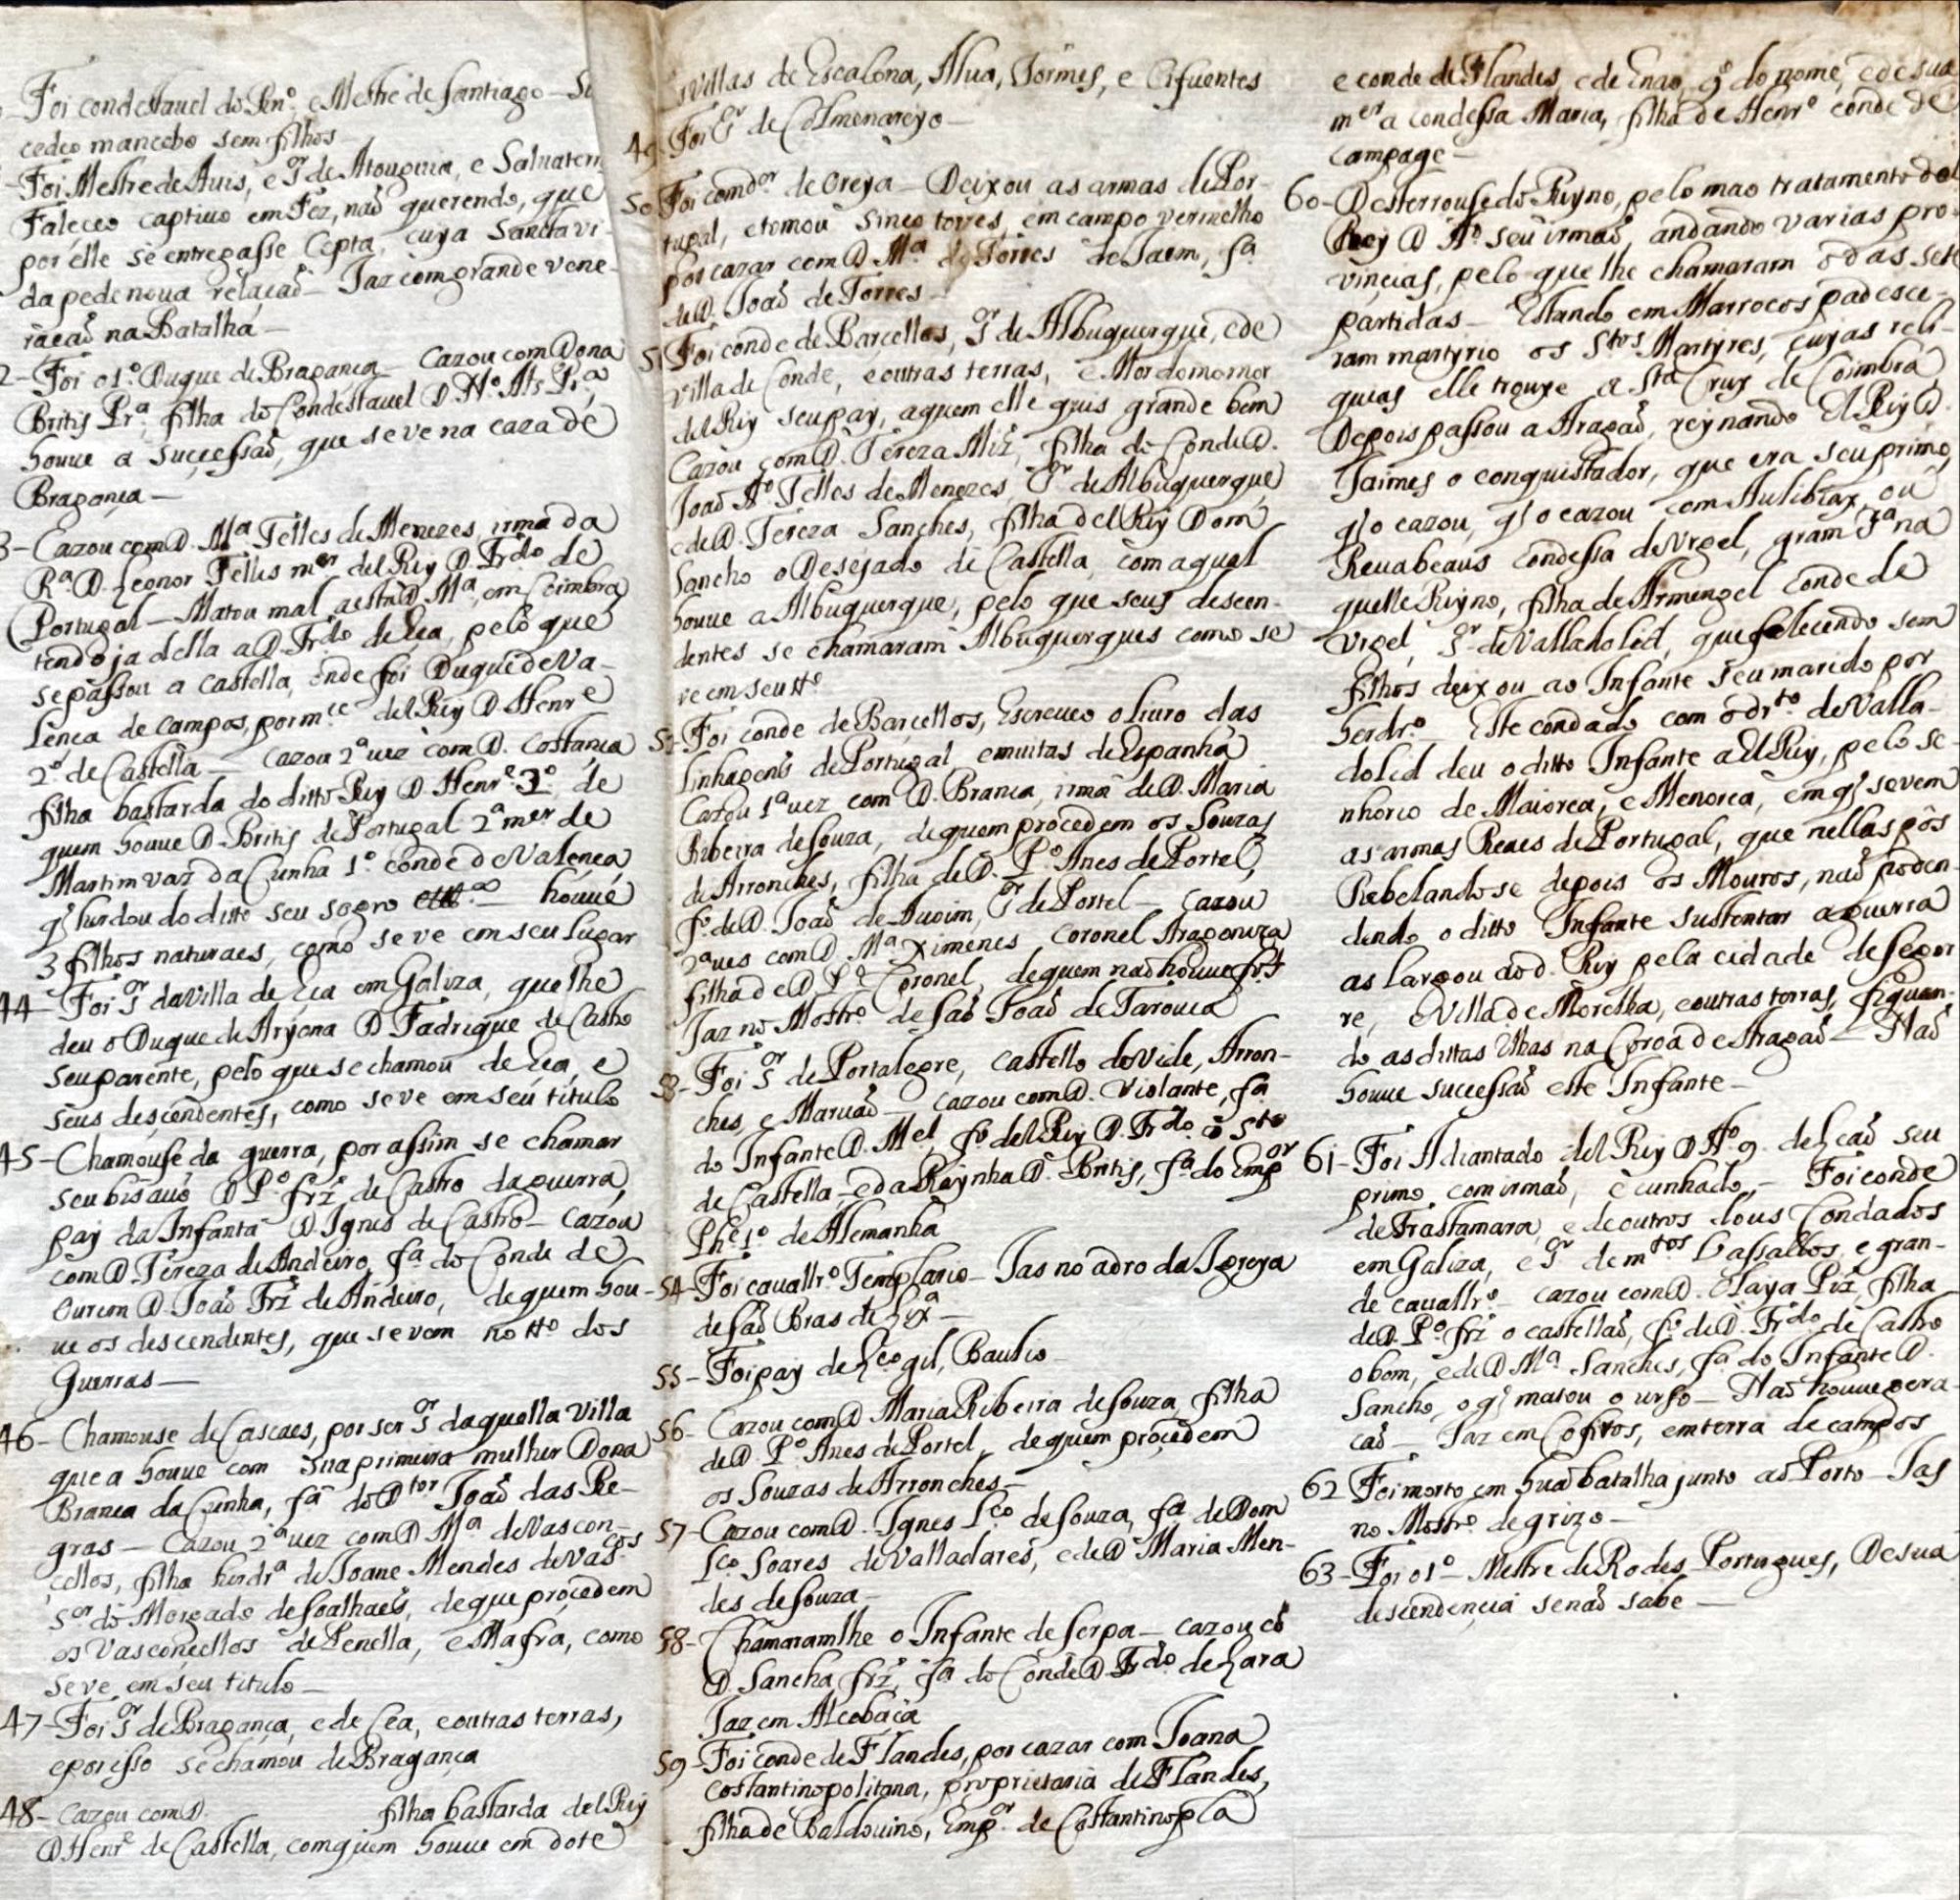 Foi condestauel do Rn.º, e Mestre de Santiago —
cedeo mancebo sem filhos —
Foi Mestre de Auis, e Sr de Atouguia, e Saluater
Faleceo captiuo em Fez, naõ querendo, que
por elle se entregasse Cepta, cuya Santa vi-
da pede noua relaçaõ — Jaz com grande vene-
raçaõ na Batalha —
2 - Foi o 1.º Duque de Bragança — Cazou com Dona
Britis Pr.ª, filha do Condestauel D. N.º Als Pr.ª
houue a successaõ, que se ve na caza de
Bragança —
3 - Cazou com D. M.ª Telles de Menezes, irmã da
R.ª D. Leonor Telles mer del Rey D. Frdo de
Portugal — Matou mal a esta D. Mª, em Coimbra
tendo ja della a D. Frdo de Eça, pelo que
se passou a Castella, onde foi Duque de Va-
lença de Campos, por mce del Rey D. Henre
2º de Castella — Cazou 2ª uez com D. Costança
filha bastarda do ditto Rey D. Henrº 3º de
quem houue D. Britis de Portugal 2ª mer de
Martim vaz da Cunha 1º conde de Valença
q̃ hurdou do ditto seu sogro — houue
3 filhos naturaes, como se ve em seu lugar
44 - Foi Sr da Villa de Eça em Galiza, que lhe
deu o Duque de Aryona D. Fadrique de Castro
seu parente, pelo que se chamou de Eça, e
seus descendentes, como se ve em seu titulo
45 - Chamouse da guerra, por assim se chamar
seu bisauo D. Pº frz de Castro da guerra,
pay da Infanta D. Ignes de Castro — Cazou
com D. Tereza de Andeiro, fª do Conde de
Ourem D. Joaõ Frz de Andeiro, de quem hou-
ue os descendentes, que se vem no tto dos
Guerras —
46 - Chamouse de Cascaes, por ser Sr daquella Villa
que a houue com sua primeira mulher Dona
Branca da Cunha, fª do Dtor Joaõ das Re-
gras — Cazou 2ª uez com D. Mª de Vascon-
cellos, filha herdrª de Joane Mendes de Vascos
Sor do Morgado de Soalhaes, de que procedem
os Vasconcellos de Penella, e Mafra, como
se ve em seu titulo —
47 - Foi Sr de Bragança, e de Cea, e outras terras,
e por isso se chamou de Bragança
48 - Cazou com D. filha bastarda del Rey
D. Henrº de Castella, com quem houue em dote
villas de Escalona, Alua, Tormes, e Cifuentes
49 - Foi Sr de Colmenareyo —
50 Foi comdor de Oreya — Deixou as armas de Por-
tugal, e tomou sinco torres, em campo vermelho
por cazar com D. Mª de Torres de Jaem, fª
de D. Joaõ de Torres —
51 - Foi conde de Barcellos, Sr de Albuquerque, e de
Villa de Conde, e outras terras, e Mordomomor
del Rey seu pay, a quem elle quis grande bem
Cazou com D. Tereza Miz, filha do Conde D.
Joaõ Aº Telles de Menezes, Sr de Albuquerque
e de D. Tereza Sanches, filha del Rey Dom
Sancho o Desejado de Castella, com a qual
houue a Albuquerque, pelo que seus descen-
dentes se chamaram Albuquerques como se
ve em seu tto
52 - Foi conde de Barcellos, Escreueo o liuro das
linhagens de Portugal, e muitas de Espanha
Cazou 1ª uez com D. Branca, irmã de D. Maria
Ribeira de Souza, de quem procedem os Souzas
de Arronches, filha de D. Pº Anes de Portel,
fº de D. Joaõ de Auoim, Sr de Portel — Cazou
2ª ues com D. Mª Ximenes Coronel Aragoneza
filha de D. Pº Coronel, de quem naõ houue fos
Jaz no Mostrº de Saõ Joaõ de Tarouca
53 - Foi Sr de Portalegre, Castello de Vide, Arron-
ches, e Maruaõ — Cazou com D. Violante, fª
do Infante D. Mel, fº del Rey D. Frdo o Sto
de Castella, e da Raynha D. Britis, fª do Empor
Phe 1º de Alemanha
54 - Foi cauallrº Templario — Jas no adro da Igreya
de Saõ Bras de Lixª —
55 - Foi pay de Lço gil, Baulio —
56 - Cazou com D. Maria Ribeira de Souza, filha
de D. Pº Anes de Portel, de quem procedem
os Souzas de Arronches —
57 - Cazou com D. Ignes Lço de Souza, fª de Dom
Lço Soares de Valladares, e de Dª Maria Men-
des de Souza —
58 - Chamaramlhe o Infante de Serpa — cazou cõ
D. Sancha frz, fª do Conde D. Frdo de Lara
Jaz em Alcobaça
59 - Foi conde de Flandes, por cazar com Joana
Costantinopolitana, proprietaria de Flandes,
filha de Baldouino, Empor de Costantinopla
e conde de Flandes, e de Enao, 9º do nome, e de sua
mer a condessa Maria, filha de Henrº conde de
Campage —
60 - Desterrouse do Reyno, pelo mao tratamento del
Rey D. Aº seu irmaõ, andando varias pro-
vincias, pelo que lhe chamaram o das sete
partidas — Estando em Marrocos padesce-
ram martyrio os Stos Martyres, cuyas reli-
quias elle trouxe a Sta Cruz de Coimbra
Depois passou a Aragaõ, reynando El Rey D.
Jaimes o conquistador, que era seu primo,
q̃ o cazou, q̃ o cazou com Aulibiax, ou
Reuabeaus condessa de Vrgel, gram Sª na
quelle Reyno, filha de Armengel conde de
Vrgel, Sr de Valladolid, que falecendo sem
filhos deixou ao Infante seu marido por
herdrº — Este condado com o drto de Valla-
dolid deu o ditto Infante a El Rey, pelo se-
nhorio de Maiorca, e Menorca, em q̃ se vem
as armas Reaes de Portugal, que nellas pôs
Rebelandose depois os Mouros, naõ poden-
dendo o ditto Infante sustentar a guerra
as largou ao d. Rey pela cidade de Segor
re, e Villa de Morelha, e outras terras, fiquan-
do as dittas Ilhas na Coroa de Aragaõ — Naõ
houue successaõ este Infante —
61 - Foi Adiantado del Rey D. Aº 9. de Leaõ seu
primo comirmaõ, e cunhado, — Foi conde
de Trastamara, e de outros dous Condados
em Galiza, e Sr de mtos Vassallos, e gran-
de cauallrº — cazou com D. Elaya Piz, filha
de D. Pº frz o castellaõ, fº de D. Frdo de Castro
o bom, e de D. Mª Sanches, fª do Infante D.
Sancho, o q̃ matou o urso — Naõ houue gera-
çaõ — Jaz em Cofitos, em terra de campos
62 Foi morto em huã batalha junto ao Porto — Jas
no Mostrº de grizo —
63 - Foi o 1º — Mestre de Rodes, Portugues, De sua
descendencia se naõ sabe —